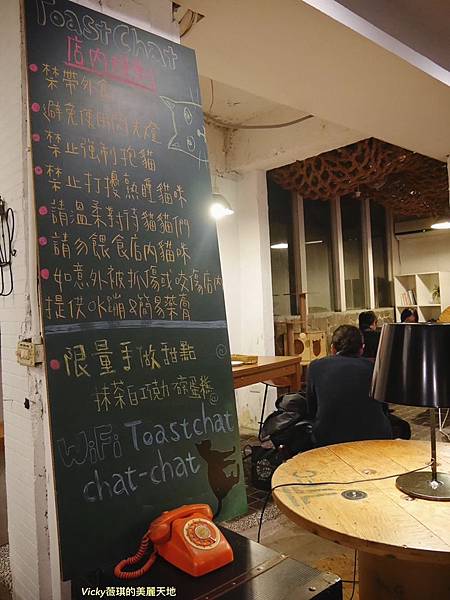 ToastChat
店內規則
禁帶外食
避免使用閃光燈
禁止強制抱貓
禁止打擾熟睡貓咪
請溫柔對待貓貓們
請勿餵食店內貓咪
如意外被抓傷或咬傷店內
提供OK蹦&簡易藥膏
限量手做甜點
抹茶白巧克力磅蛋糕
WiFi Toastchat
chat-chat
Vicky薇琪的美麗天地